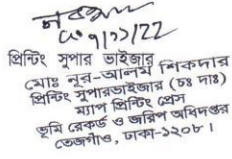 ০৭/১১/22
প্রিন্টিং সুপার ভাইজার
মোঃ নূর-আলম শিকদার
প্রিন্টিং সুপারভাইজার (চঃ দাঃ)
ম্যাপ প্রিন্টিং প্রেস
ভূমি রেকর্ড ও জরিপ অধিদপ্তর
তেজগাঁও, ঢাকা-১২০৮।